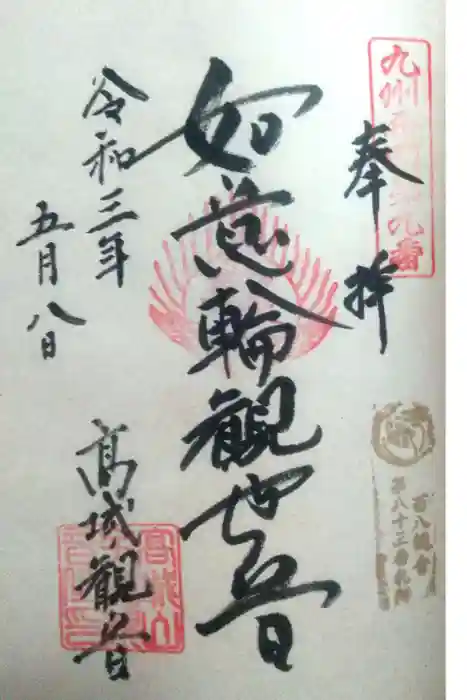 奉拝
百八観音
第八十三番札所
如意輪観世音
令和三年
五月八日
高城観音